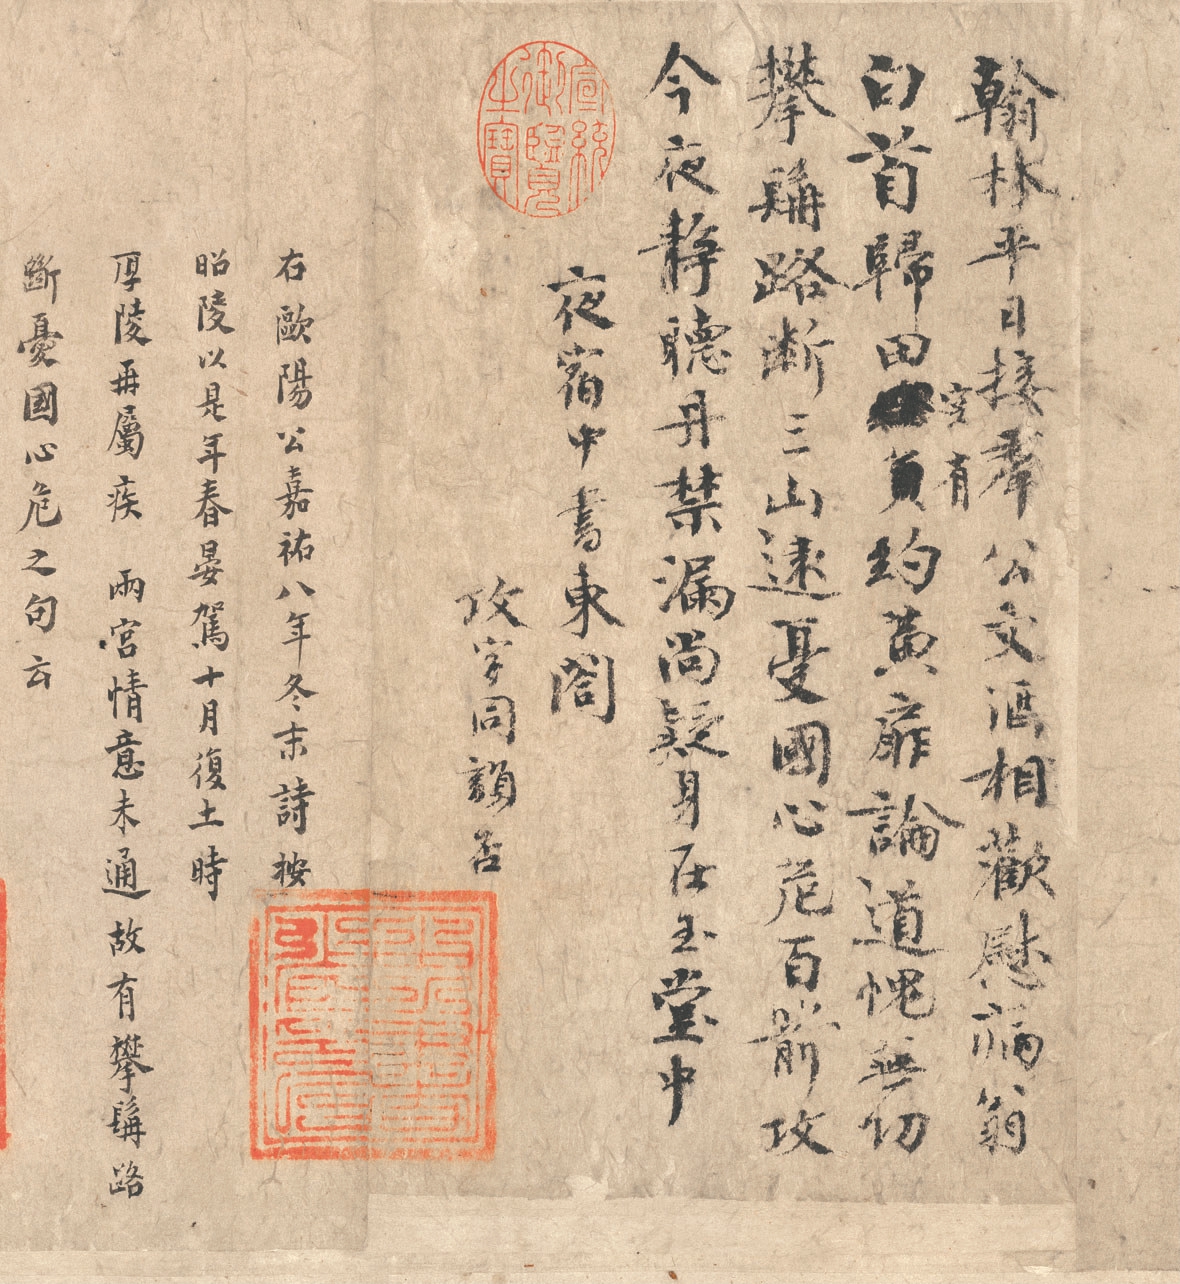 翰林平日接羣公文酒相歡慰病翁
空有
白首歸田負約黃扉論道愧無功
攀髯路斷三山遠憂國心危百箭攻
今夜靜聽丹禁漏尚疑身在玉堂中
夜宿中書東閣
攻字同韻否
宣統御覽之寶
右歐陽公嘉祐八年冬末詩按
昭陵以是年春晏駕十月復土時
厚陵再屬疾 兩宮情意未通故有攀髯路
斷憂國心危之句云